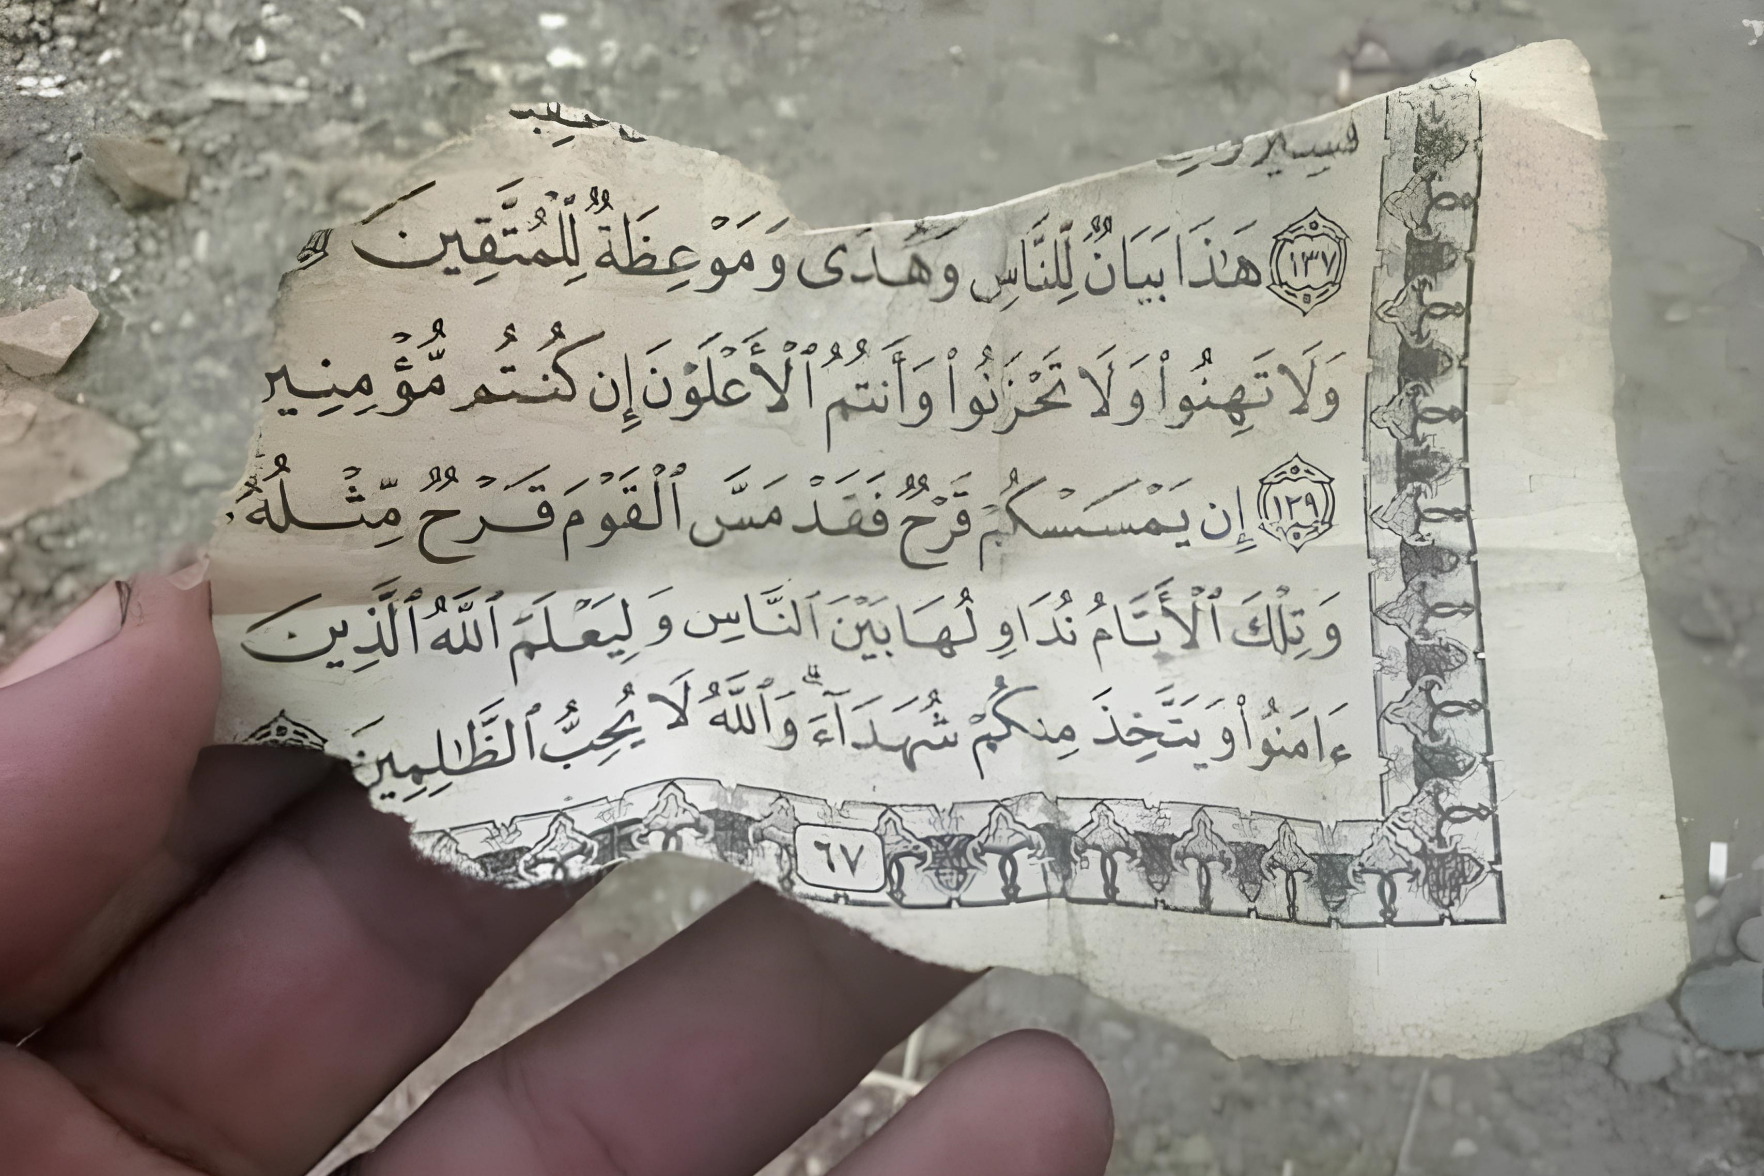 ﴿١٣٧﴾ هَٰذَا بَيَانٌ لِّلنَّاسِ وَهُدًى وَمَوْعِظَةٌ لِّلْمُتَّقِينَ
وَلَا تَهِنُوا۟ وَلَا تَحْزَنُوا۟ وَأَنتُمُ ٱلْأَعْلَوْنَ إِن كُنتُم مُّؤْمِنِيـ
﴿١٣٩﴾ إِن يَمْسَسْكُمْ قَرْحٌ فَقَدْ مَسَّ ٱلْقَوْمَ قَرْحٌ مِّثْلُهُۥ
وَتِلْكَ ٱلْأَيَّامُ نُدَاوِلُهَا بَيْنَ ٱلنَّاسِ وَلِيَعْلَمَ ٱللَّهُ ٱلَّذِينَ
ءَامَنُوا۟ وَيَتَّخِذَ مِنكُمْ شُهَدَآءَ ۗ وَٱللَّهُ لَا يُحِبُّ ٱلظَّٰلِمِينَ
٦٧